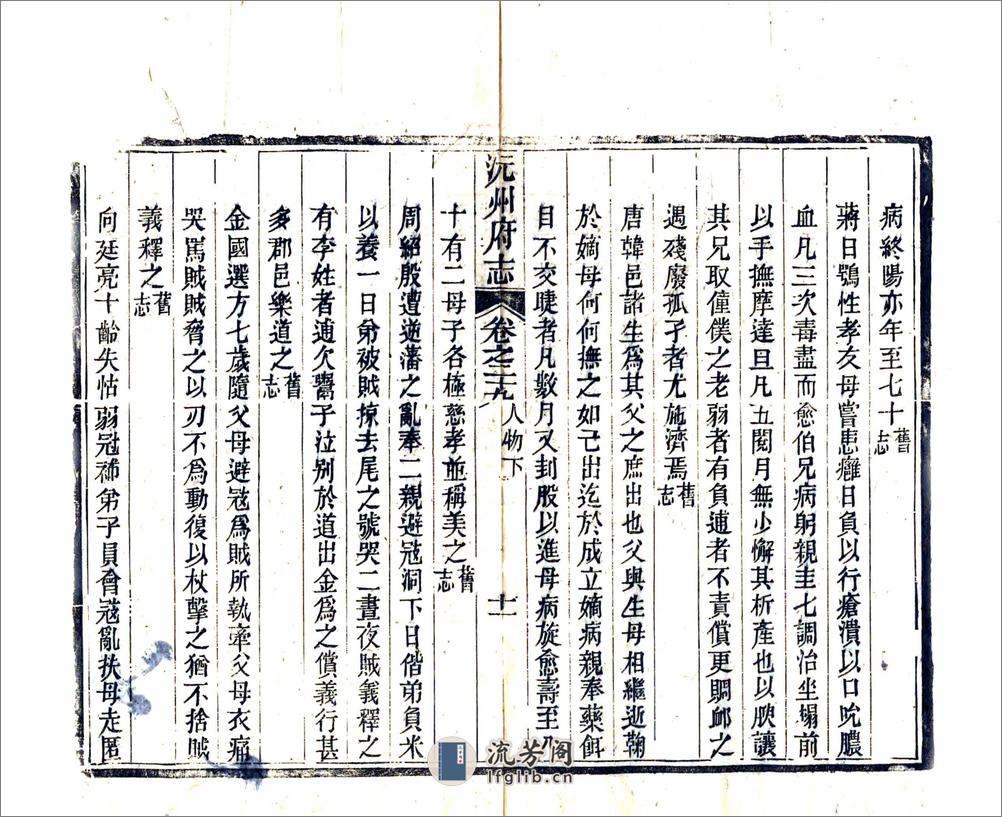 病終陽亦年至七十舊志
蔣日鶚性孝友母嘗患癰日負以行瘡潰以口吮膿
血凡三次毒盡而愈伯兄病躬親圭七調治坐塌前
以手撫摩達旦凡五閱月無少懈其析產也以腴讓
其兄取僮僕之老弱者有負逋者不責償更賙䘏之
遇殘廢孤孑者尤施濟焉舊志
唐韓邑諸生爲其父之庶出也父與生母相繼逝鞠
於嫡母何何撫之如己出迄於成立嫡病親奉藥餌
目不交睫者凡數月又刲股以進母病旋愈壽至八
沅州府志 卷之三十九 人物下 十一
十有二母子各極慈孝並稱美之舊志
周紹殷遭逆藩之亂奉二親避寇洞下日偕弟負米
以養一日弟被賊掠去尾之號哭二晝夜賊義釋之
有李姓者逋欠鬻子泣别於道出金爲之償義行甚
多郡邑樂道之舊志
金國選方七歲隨父母避寇爲賊所執牽父母衣痛
哭罵賊賊脅之以刃不爲動復以杖擊之猶不捨賊
義釋之舊志
向廷亮十齡失怙弱冠補弟子員會寇亂扶母走匿
流芳阁
lfglib.cn